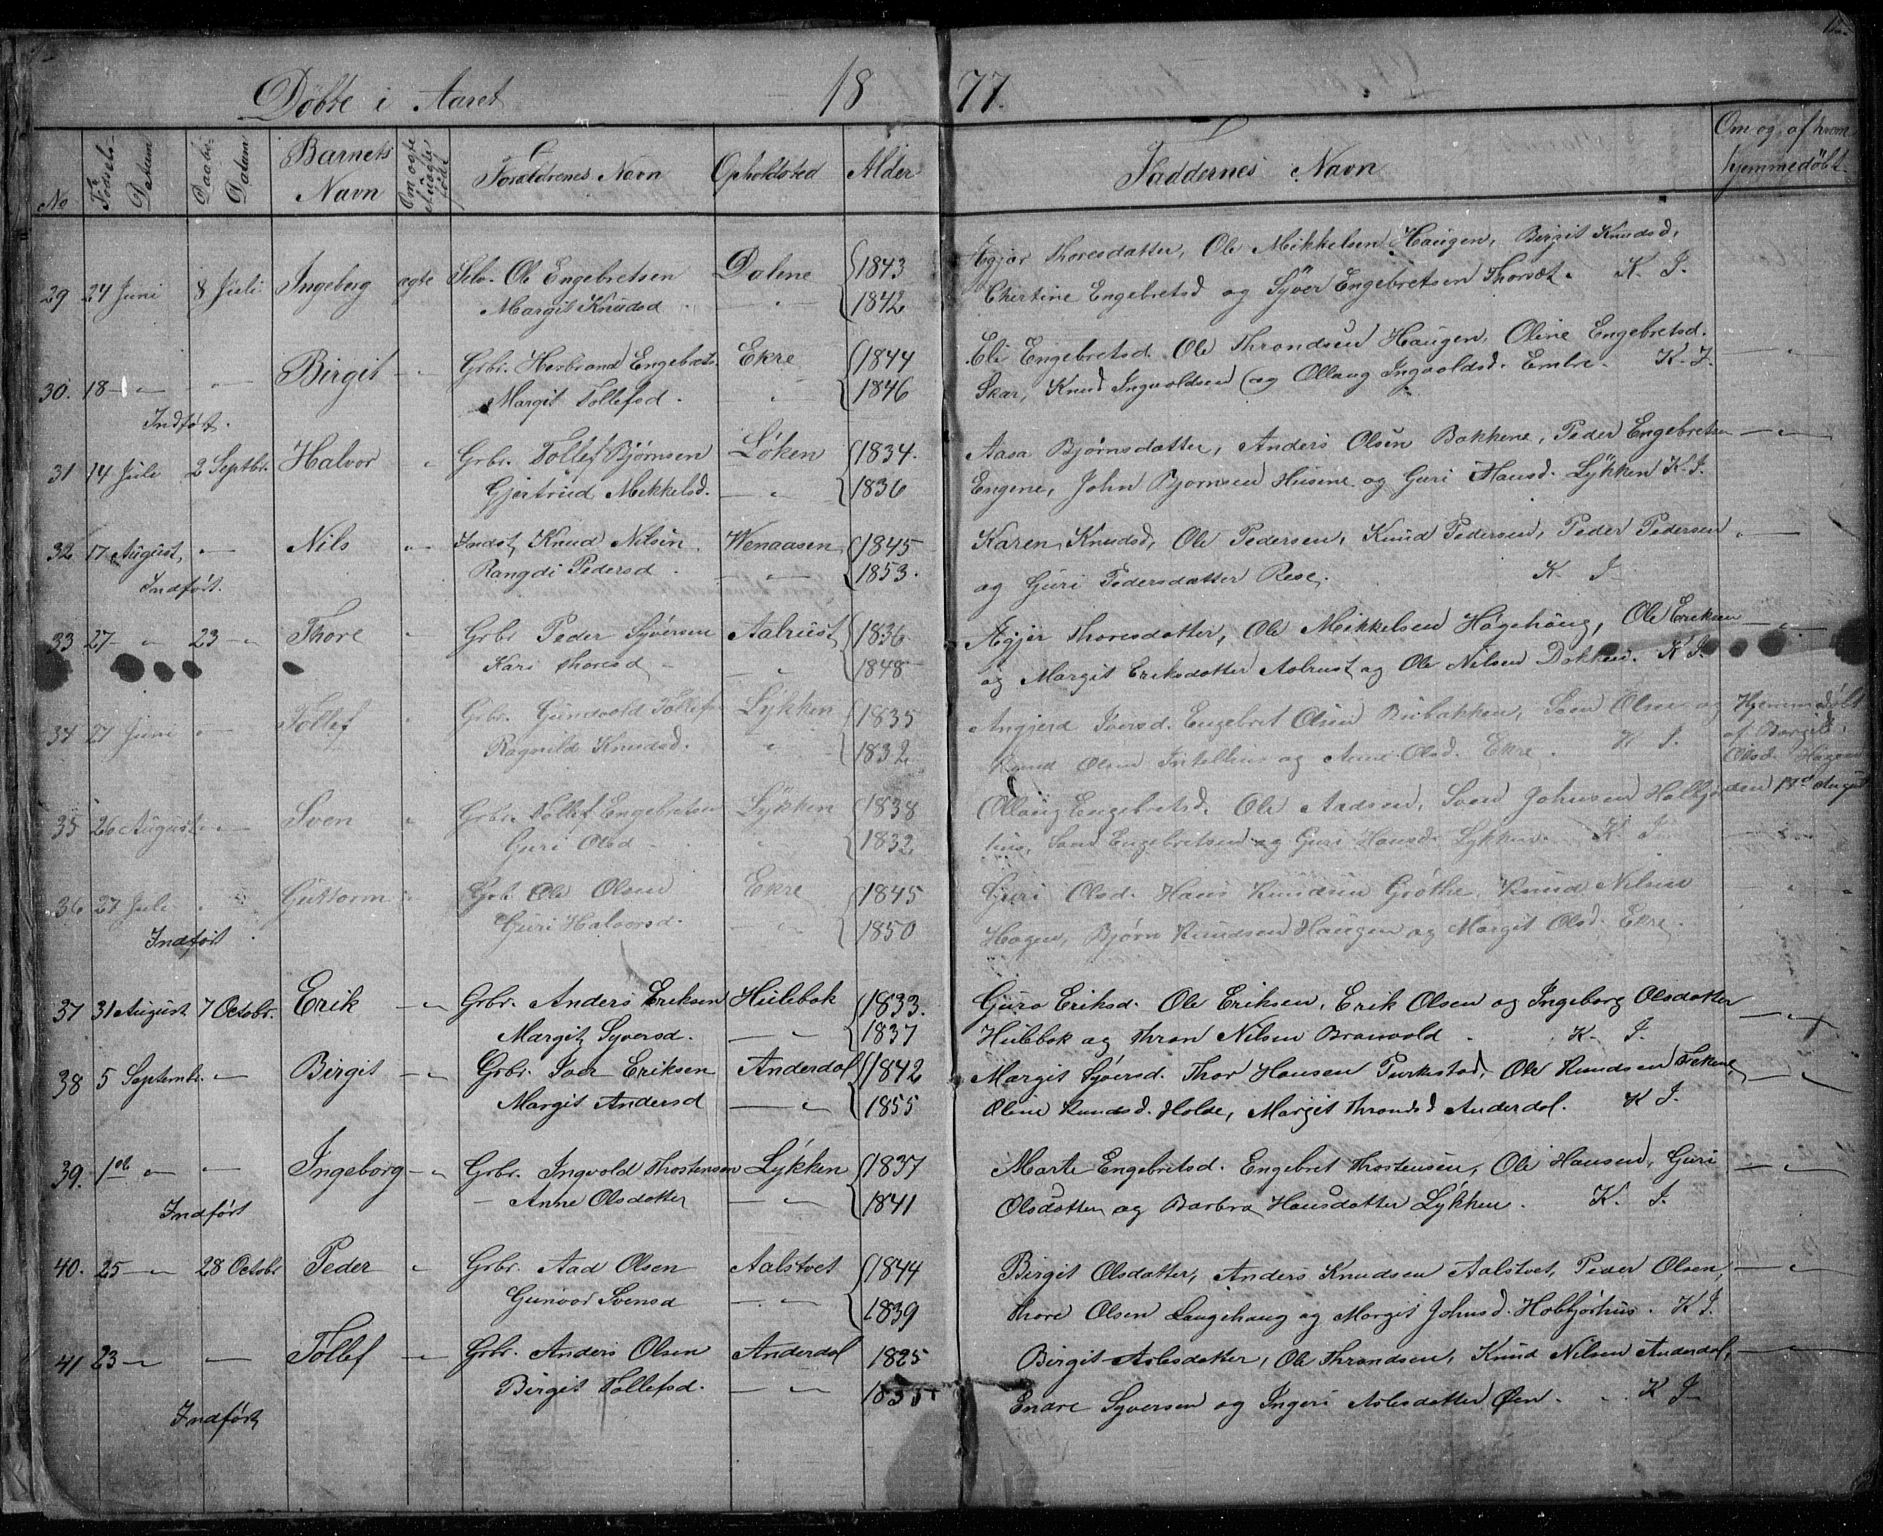 Døbte i Aaret 1877.
No Fødsels Datum Daabs Datum Barnets Navn Om ægte ell. uægte født Foraldrenes Navn Opholdsted Alder Faddernes Navn Om og af hvem hjemmedøbt
29 24 Juni 8 Juli Ingeborg ægte Selv. Ole Engebretsen Dalene 1843 Thoresdatter, Ole Mikkelsen Haugen, Birgit Knudsd,
Margit Knudsd " 1842 Engebretsd og Syver Engebretsen K. I.
30. 18 " " Birgit " Grbr. Herbrand Engebrets. Ekre 1844 Eli Engebretsd. Ole Throndsen Haugen, Oline Engebretsd. "
Margit Tollefsd. " 1846 Skar, Knud Ingvoldsen og Ollaug Ingvoldsd. K. I.
Indført.
31 14 Juli 2 Septbr. Halvor " Grbr. Tollef Bjørnsen Løken 1834. Aasa Bjørnsdatter, Anders Olsen Bakkene, Peder Engebretsen "
Gjertrud Mikkelsd. " 1836 Engene, John Bjørnsen Husene og Guri Hansd. Lykken K. I.
32 17 August, " Nils " Indst. Knud Nilsen Wenaasen 1845 Karen Knudsd, Ole Pedersen, Knud Pedersen, Peder Pedersen "
Rangdi Pedersd. " 1853. og Guri Pedersdatter K. I.
Indført.
33 27 " 23 " Thore " Grbr. Peder Syversen Aalrust 1836 Thoresdatter, Ole Mikkelsen Høgehaug, Ole Eriksen "
Kari Thoresd " 1848 og Margit Eriksdatter Aalrust og Ole Nilsen Dokken. K. I.
34 27 Juni " Tollef " Grbr. Gundvold Tollefs Lykken 1835 Angjerd Engebret Olsen Svend Olsen og Hjemmedøbt
Ragnild Knudsd. " 1832 Knud Olsen og Anne Olsd. Ekre. K. I. af Olsd.
35 26 August " Sven " Grbr. Tollef Engebretsen Lykken 1838 Ollaug Engebretsd. Ole Aadsen, Svend Johnsen Hobbjør den August
Guri Olsd " 1832 hus, Engebretsen og Guri Hansd. Lykken. K. I.
36 27 Juli " Guttorm " Grb. Ole Olsen Ekre 1845 Guri Olsd. Hans Knudsen Grøthe, Knud Nilsen "
Guri Halvorsd. " 1850 Hagen, Bjørn Knudsen Haugen og Margit Olsd. Ekre.
Indført.
37 31 August 7 Octobr. Erik " Grbr. Anders Eriksen Hulebok 1833. Guro Eriksd. Ole Eriksen, Erik Olsen og Ingeborg Olsdatter "
Margit Syversd. " 1837 Hulebok og Thron Nilsen Branvold. K. I.
38 5 Septembr. " Birgit " Grbr. Iver Eriksen Anderdal 1842 Margit Syversd. Thor Hansen Ole Knudsen "
Margit Andersd " 1855 Oline Knudsd. Holde, Margit Throndsd Anderdal. K. I.
39. 1ste " " Ingeborg " Grbr. Ingvold Thostensen Lykken 1837 Marte Engebretsd. Engebret Thostensen, Ole Hansen, Guri "
Anne Olsdatter " 1841 Olsdatter og Barbra Hansdatter Lykken. K. I.
Indført
40. 25 " 28 Octobr. Peder " Grbr. Aad Olsen Aalstvet 1844 Birgit Olsdatter, Anders Knudsen Aalstvet, Peder Olsen, "
Gunvor Svensd " 1839 Thore Olsen Langehaug og Margit Johnsd. Hobbjørhus. K. I.
41 23 " " Tollef " Grbr. Anders Olsen Anderdal 1825 Birgit Aslesdatter, Ole Throndsen, Knud Nilsen Anderdal, "
Birgit Tollefsd. " 1835 Endre Syversen og Ingeri Aslesdatter Øen. K. I.
Indført